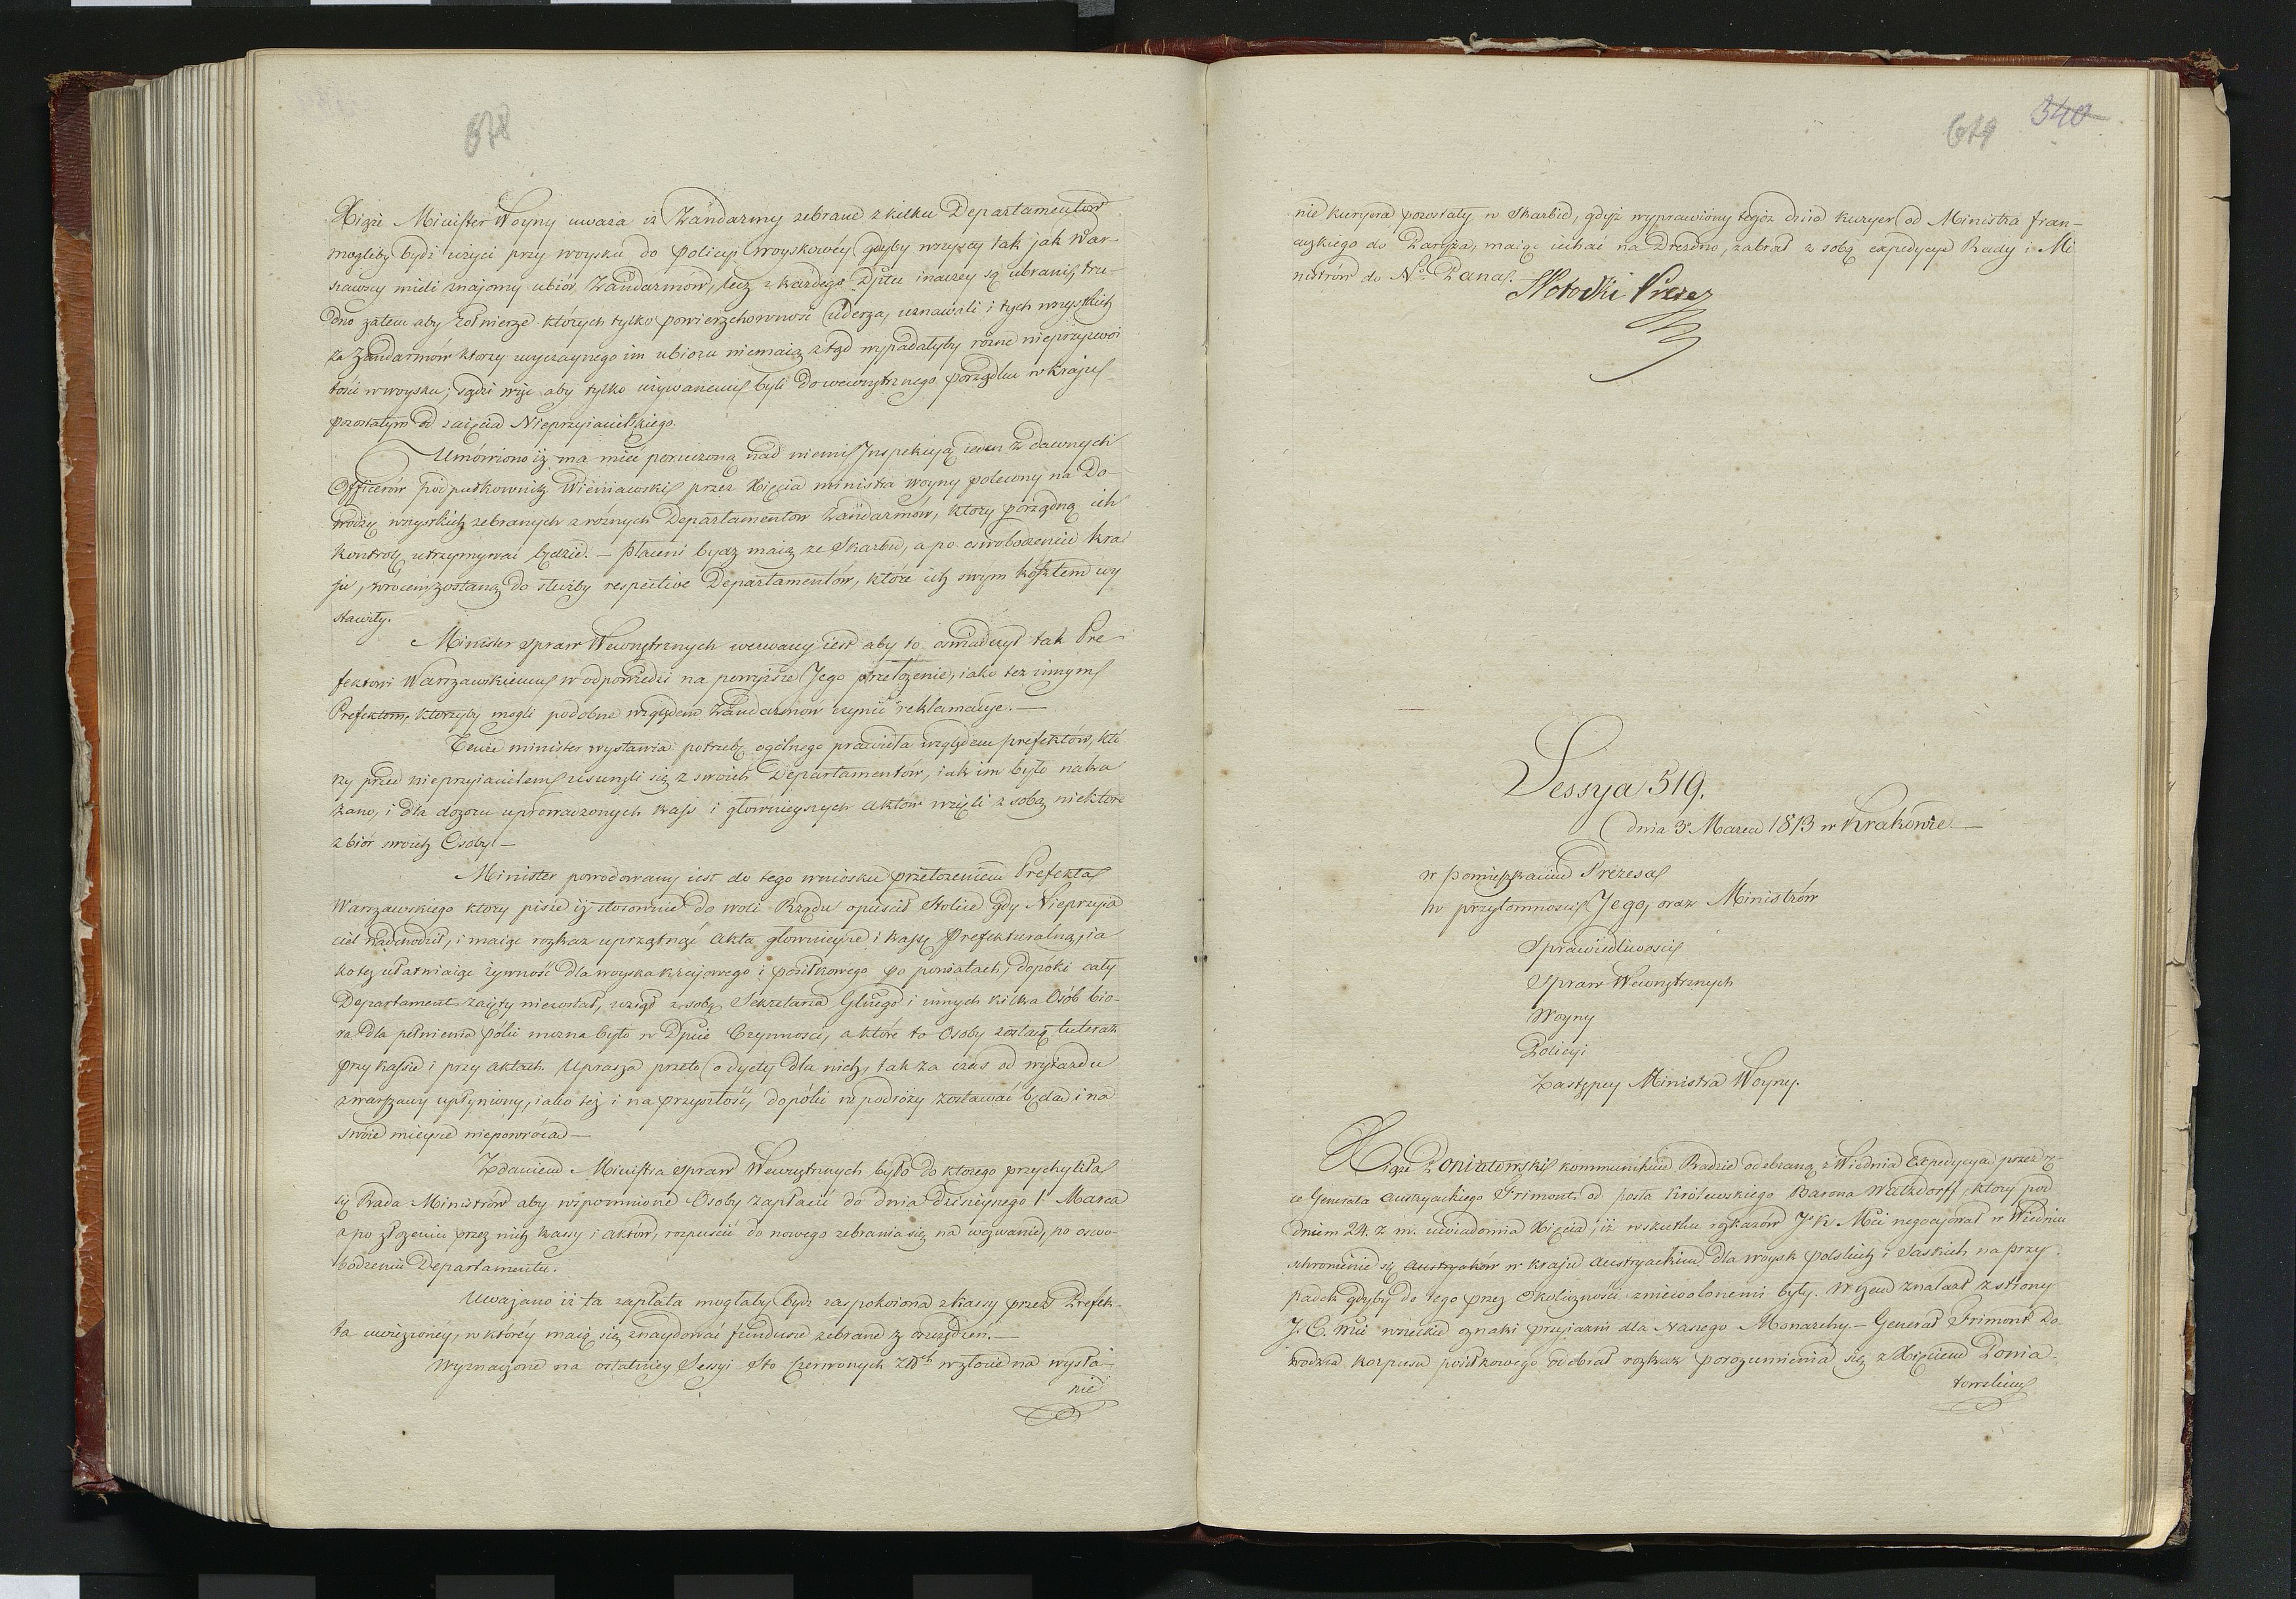 678
Xiąże Minister Woyny uważa iż Żandarmy zebrane z kilku Departamentow
mogliby bydź użyci przy woysku do Policyi woyskowéy gdyby wszyscy tak jak War-
szawscy mieli znajomy ubiór Żandarmów, lecz z każdego Dpttu inaczey są ubrani, tru-
dno zatem aby żołnierze których tylko powierzchowność uderza, uznawali i tych wszystkich
za Żandarmów ktorzy zwyczaynego im ubioru niemaią ztąd wypadałyby rożne nieprzyzwoi
tości w woysku; sądzi więc aby tylko używanemi byli do wewnętrznego porządku w Kraju
pozostałym od zaięcia Nieprzyiacielskiego.
Umówiono iż ma mieć poruczoną nad niemi Inspekcyą ieden z dawnych
Officerów podpułkownik Wieniawski przez Xięcia ministra woyny polecony na Do-
wódzcę wszystkich zebranych z rożnych Departamentow Żandarmów, ktory porządną ich
kontrolę utrzymywać będzie. — Płaceni bydź maią ze Skarbu, a po oswobodzeniu kra
ju, wróceni zostaną do służby respective Departamentów, które ich swym kosztem wy
stawiły.
Minister spraw Wewnętrznych wezwany iest aby to oświadczył tak Pre
fektowi Warszawskiemu w odpowiedzi na powyższe Jego przełożenie, iako też innym
Prefektom, ktorzyby mogli podobne względem Żandarmów czynić reklamacye. —
Tenże minister wystawia potrzebę ogólnego prawidła względem prefektów, któ
rzy przed nieprzyiacielem usunęli się z swoich Departamentów, iak im było naka
zano, i dla dozoru uprowadzonych kass i głownieyszych aktów wzięli z sobą niektore
z biór swoich Osoby. —
Minister powodowany iest do tego wniosku przełożeniem Prefekta
Warszawskiego ktory pisze iż stosownie do woli Rządu opuścił Stolicę gdy Nieprzyia
ciel nadchodził, i maiąc rozkaz uprzątnąć akta głownieysze i kassę Prefekturalną, ia
ko też ułatwiaiąc żywność dla woyska kraiowego i posiłkowego po powiatach, dopóki cały
Departament zaięty niezostał, wziął z sobą Sekretarza Glnego i innych kilka Osób bio-
ra dla pełnienia póki można było w Dpcie Czynności, a które to Osoby zostaią tuteraz
przy kassie i przy aktach. Uprasza przeto o dyety dla nich, tak za czas od wyiazdu
z warszawy upłyniony, iako też i na przyszłość, dopóki w podróży zostawać będą i na
swoie mieysce niepowrócą —
Zdaniem Ministra spraw Wewnętrznych było do ktorego przychyliła
się Rada Ministrów aby wspomnione Osoby zapłacić do dnia dzisieyszego 1o Marca
a po złożeniu przez nich kassy i aktów, rozpuścić do nowego zebrania się na wezwanie, po oswo-
bodzeniu Departamentu.
Uważano iż ta zapłata mogłaby bydź zaspokoiona z kassy przez Prefek-
ta uwiezioney, w którey maią się znaydować fundusze zebrane z oszczędzeń. —
Wyznaczone na ostatniey Sessyi Sto czerwonych Złch w złocie na wysła-
nie
679 540
nie kuryera pozostały w Skarbie, gdyż wyprawiony tegoż dnia kuryer od Ministra fran-
cuzkiego do Paryża, maiąc iechać na Drezdno, zabrał z sobą expedycye Rady i Mi
nistrów do No Pana.
Potocki Prezes
Sessya 519.
dnia 3o Marca 1813 w Krakowie —
w pomieszkaniu Prezesa
w przytomności Jego, oraz Ministrów
Sprawiedliwości
Spraw Wewnętrznych
Woyny
Policyi
Zastępcy Ministra Woyny.
Xiąże Poniatowski kommunikuie Radzie odebraną z Wiednia Expedycyą przez rę-
ce Generała austryackiego Frimont, od posła Królewskiego Barona Watzdorff, ktory pod
dniem 24. z. m. uwiadomia Xięcia, iż w skutku rozkazów J. K. Mci negocyował w Wiedniu
schronienie się Austryaków w kraju austryackim dla woysk polskich i Saskich na przy-
padek gdyby do tego przez okoliczności zniewolonemi były. W czem znalazł z strony
J. C. Mci wszelkie oznaki przyiaźni dla Naszego Monarchy. — Generał Frimont Do-
wódzca korpusu posiłkowego odebrał rozkaz porozumienia się z Xięciem Ponia-
towskim